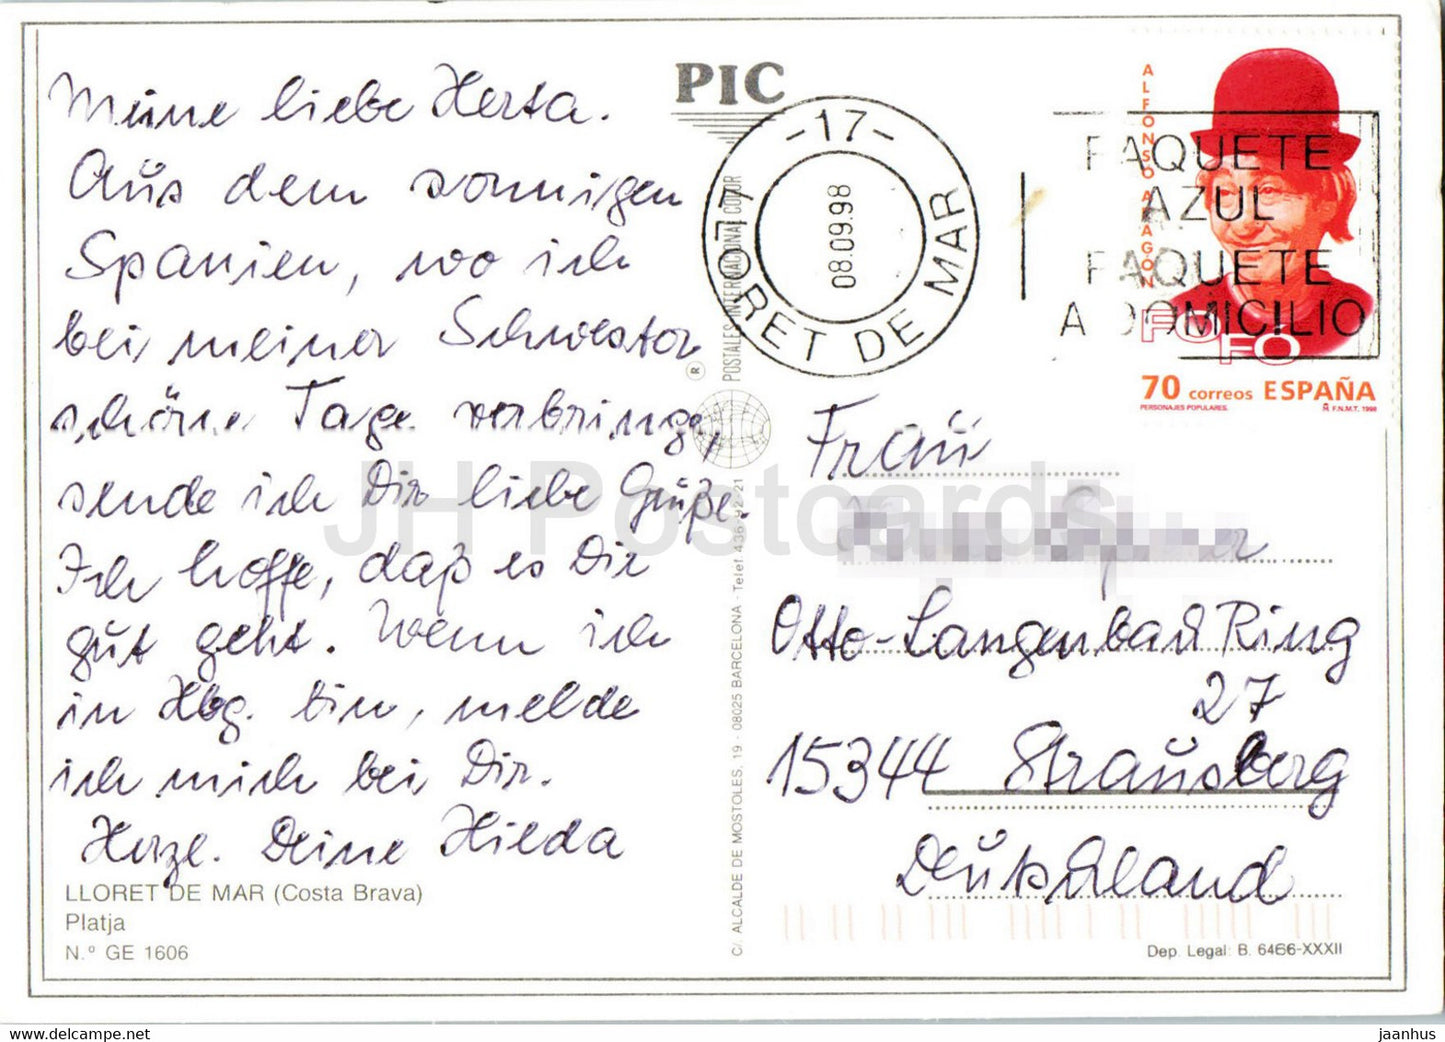 Meine liebe Herta.
Aus dem sonnigen
Spanien, wo ich
bei meiner Schwester
schöne Tage verbringe,
sende ich Dir liebe Grüße.
Ich hoffe, daß es Dir
gut geht. Wenn ich
in Hbg. bin, melde
ich mich bei Dir.
Herzl. Deine Hilda
LLORET DE MAR (Costa Brava)
Platja
N.º GE 1606
PIC
C/. ALCALDE DE MOSTOLES, 19 - 08025 BARCELONA - Telef. 436 92 21
® POSTALES INTERNACIONAL COLOR
-17-
08.09.98
LLORET DE MAR
PAQUETE
AZUL
PAQUETE
A DOMICILIO
ALFONSO ARAGÓN
FOFÓ
70 correos ESPAÑA
PERSONAJES POPULARES.
F.N.M.T. 1998
Frau
Otto-Langenbach Ring
27
15344 Strausberg
Deutschland
Dep. Legal: B. 6466-XXXII
JH Postcards
www.delcampe.net
jaanhus